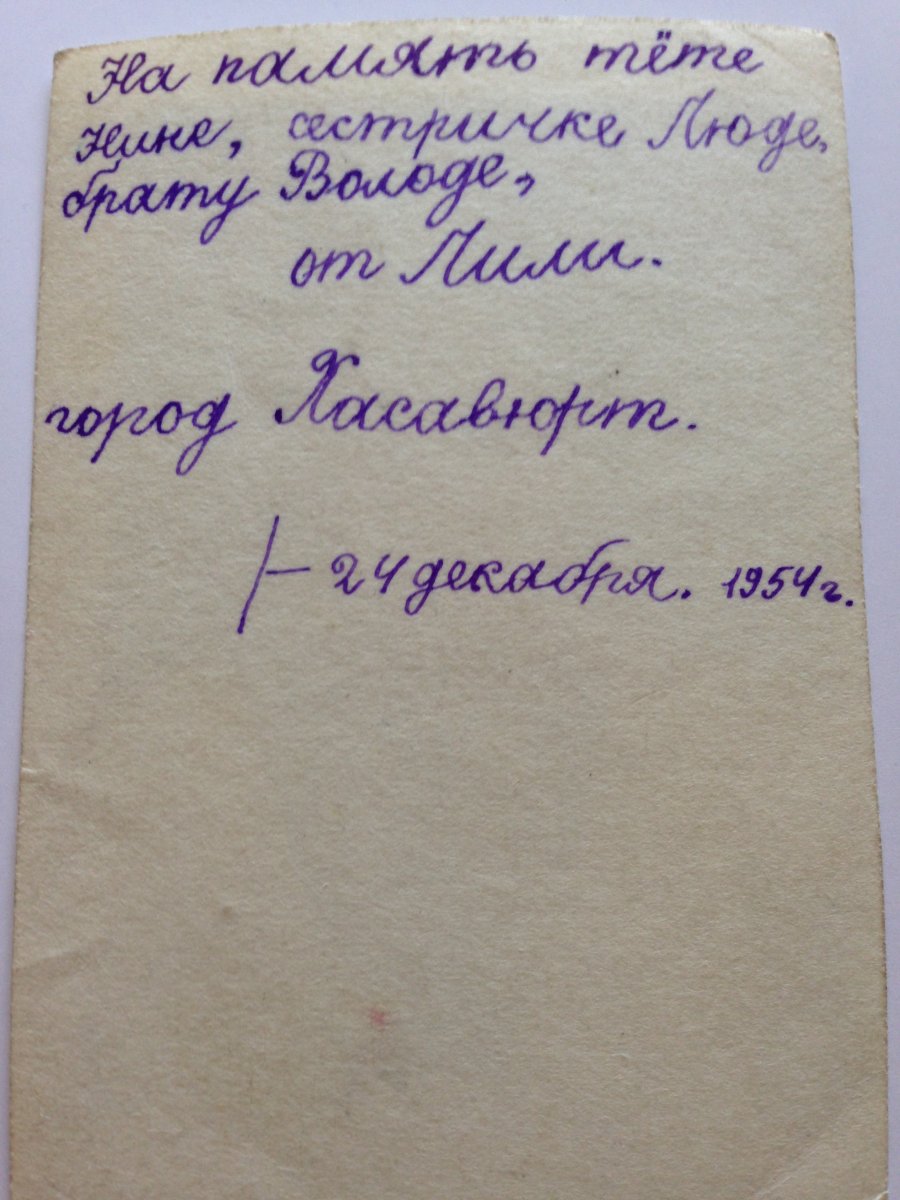 На память тёте
Нине, сестричке Люде,
брату Володе,
от Лили.
город Хасавюрт.
|– 24 декабря. 1954 г.